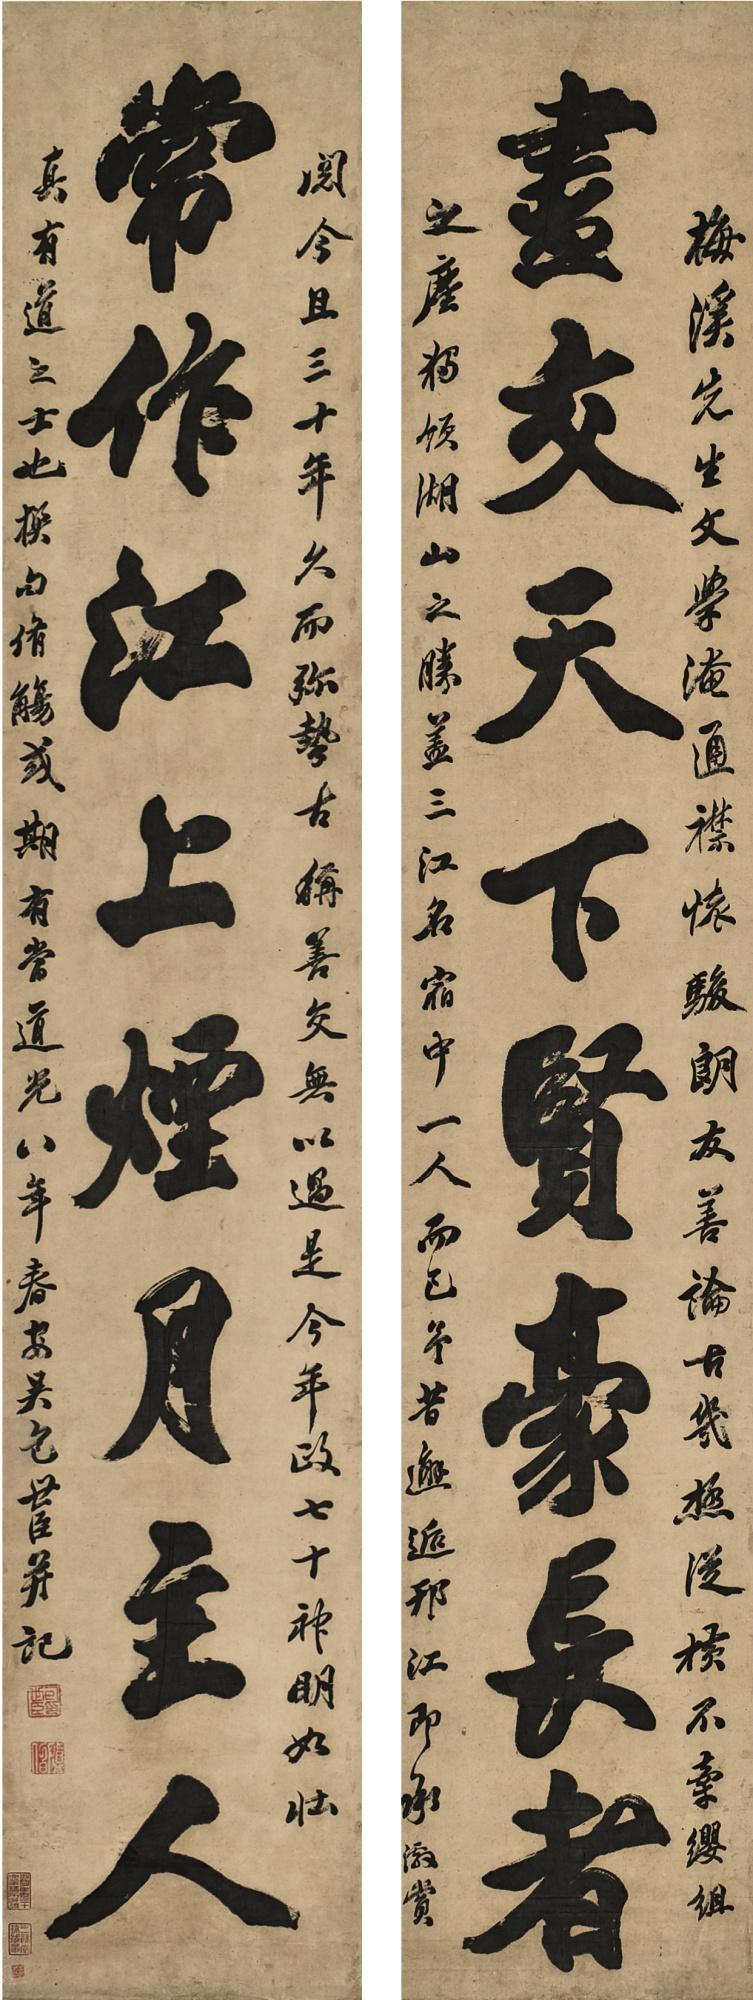 梅溪先生文學淹通襟懷駿朗友善論古幾極從橫不牽纓組
盡交天下賢豪長者
之塵獨領湖山之勝蓋三江名宿中一人而已予昔邂逅邗江即承激賞
閱今且三十年久而彌摯古稱善交無以過是今年政七十神明如壯
常作江上煙月主人
真有道之士也撰句侑觴或期有當道光八年春安吳包世臣并記